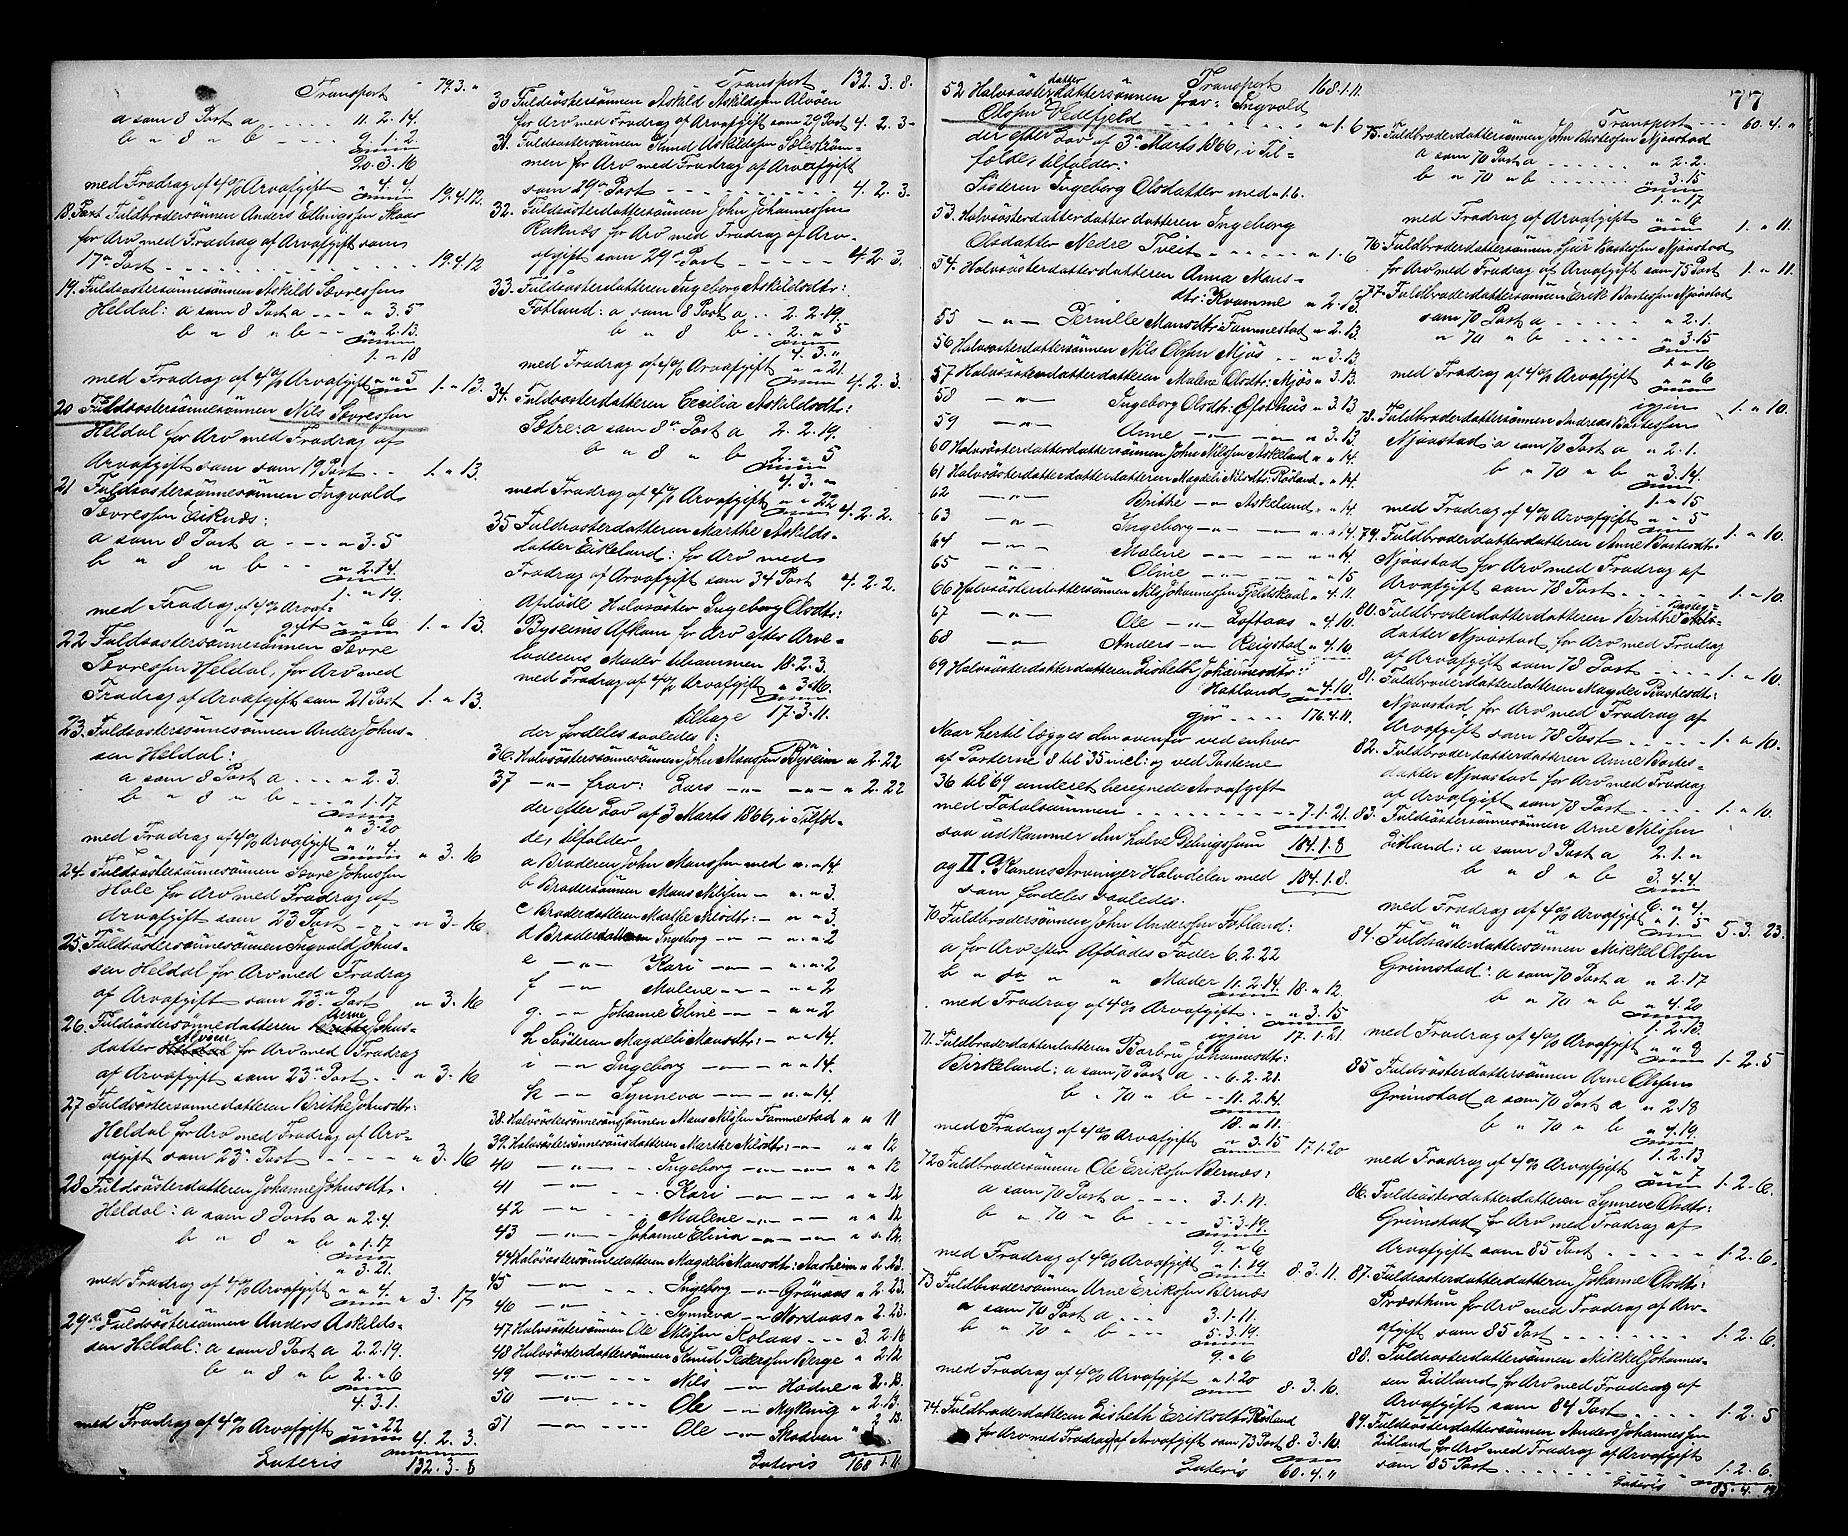 Transport " 79.3. "
a som 8 Post a . . . . . 11. 2. 14.
b " 8 " b . . . . 9. 1. 2.
20. 3. 16
med Fradrag af 4 % Arvafgift " 4. 4. 19. 4. 12.
18. Post Fuldbrodersönnen Anders Ellingssen Skaar
for Arv med Fradrag af Arvafgift som
17de Post . . . . . . . . 19. 4. 12
19. Fuldsöstersönnesönnen Askild Sævressen
Heldal: a som 8 Post a . . . " 3. 5
b " 8 " b . . " 2. 13.
1. " 18
med Fradrag af 4 % Arvafgift " " 5 1. " 13.
20 Fuldsöstersönnesönnen Nils Sævressen
Heldal for Arv med Fradrag af
Arvafgift som som 19 Post . . 1. " 13.
21 Fuldsöstersönnesönnen Ingvald
Sævressen Eiknæs:
a som 8 Post a . . . " 3. 5
b " 8 " b . . " 2. 14.
1. " 19.
med Fradrag af 4 % Arvaf-
gift " " 6 1. " 13.
22 Fuldsöstersönnesönnen Sævre
Sævressen Heldal, for Arv med
Fradrag af Arvafgift som 21 Post 1. " 13.
23. Fuldsöstersönnesönnen Ander Johns-
sen Heldal:
a som 8 Post a . . . " 2. 3.
b " 8 " b . . . " 1. 17
" 3. 20
med Fradrag af 4 % Arvafgift " " 4. " 3. 16
24. Fuldsöstersönnesönnen Sævre Johnssen
Hole for Arv med Fradrag af
Arvafgift som 23 Post . . " 3. 16
25. Fuldsöstersönnesönnen Ingvald Johns-
sen Heldal for Arv med Fradrag
af Arvafgift som 23de Post " 3. 16
26. Fuldsöstersönnedatteren Johns-
datter Alvöen for Arv med Fradrag
af Arvafgift som 23de Post . . " 3. 16
27 Fuldsöstersönnedatteren Brithe Johnsdtr:
Heldal for Arv med Fradrag af Arv-
afgift som 23de Post . . . . " 3. 16
28 Fuldsösterdatteren Johanne Johnsdtr:
Heldal: a som 8 Post a " 2. 4.
b " 8 " b " 1. 17
" 3. 21.
med Fradrag af 4 % Arvafgift " " 4. " 3. 17
29de Fuldsöstersönnen Anders Askilds-
sen Heldal: a som 8 Post a 2. 2. 19.
b " 8 " b 2. " 6
4. 3. 1.
med Fradrag af 4 % Arvafgift " " 22 4. 2. 3.
Lateris 132. 3. 8
Transport 132. 3. 8.
30 Fuldsöstersönnen Askild Askildssen Alvöen
for Arv med Fradrag af Arvafgift som 29 Post 4. 2. 3
31. Fuldsöstersönnen Knud Askildssen Sæleström-
men for Arv med Fradrag af Arvafgift
som 29de Post . . . . . . . . 4. 2. 3.
32. Fuldsösterdattersönnen John Johannessen
Raknæs for Arv med Fradrag af Arv-
afgift som 29de Post . . . . 4. 2. 3.
33. Fuldsösterdatteren Ingeborg Askildsdtr:
Fotland: a som 8 Post a . . 2. 2. 19.
b " 8 b . . 2. " 5
4. 3. "
med Fradrag af 4 % Arvafgift " " 21. 4. 2. 3.
34. Fuldsösterdatteren Cecilia Askildsdtr:
Sætre: a som 8de Post a 2. 2. 19.
b " 8 " b 2. " 5
4. 3. "
med Fradrag af 4 % Arvafgift " " 22 4. 2. 2.
35 Fuldsösterdatteren Marthe Askilds-
datter Eikeland: for Arv med
Fradrag af Arvafgift som 34 Post 4. 2. 2.
Aflöde Halvsöster Ingeborg Olsdtr:
Byseims Afkom for Arv efter Arve-
laderens Moder tilsammen 18. 2. 3.
med Fradrag af 4 % Arvafgift " 3. 16.
tilbage 17. 3. 11.
der fordeles saaledes:
36. Halvsöstersönnesönnen John Monssen Byseim " 2. 22
37 — " — frav: Lars — " — — " — " 2. 22
der efter Lov af 3 Marts 1866, i Tilfol-
de, tilfalder
a Broderen John Monssen med " . " 14.
b Brodersönnen Mons Nilssen — " . " 3.
c Broderdatteren Marthe Nilsdtr: — " . " 3.
d Broderdatteren Ingeborg — " — — " . " 2
e — " — Kari — " — — " . " 2
f — " — Malene — " — — " . " 2
g. — " — Johanne Eline — " — " . " 2
h Sösteren Magdeli Monsdtr: — " . " 14.
i — " — Ingeborg — " — — " . " 14.
k — " — Synneva — " — — " . " 14.
38. Halvsöstersönnesönsönnen Mons Nilssen Fammestad " " 11
39. Halvsöstersönnesönsdatteren Marthe Nilsdtr: — " — " " 12
40 — " — . . Ingeborg — " — — " — " " 12
41 — " — . . Kari — " — — " — " " 12
42 — " — . . Malene — " — — " — " " 12
43 — " — . . Johanne Elina — " — — " — " " 12.
44 Halvsöstersönnedatteren Magdeli Monsdtr: Aasheim " 2. 23.
45 — " — . . . Ingeborg — " — Grönaas " 2. 23.
46 — " — . . . Synneva — " — Nordaas " 2. 23.
47 Halvsöstersönnen Ole Nilssen Rolaas . . . 3. 2. 16
48 Halvsösterdattersönnen Knud Pederssen Berge " 2. 12
49 — " — . . . Nils — " — Hodne " 2. 13.
50 — " — . . . Ole — " — Myking " 2. 13.
51 — " — . . . Ole — " — Skodven " 2. 13.
Lateris 168. 1. 11.
Transport 168. 1. 11.
52 Halvsösterdatterdattersönnen frav: Ingvald
Olsen Vedefjeld . . . . . . . . " 1. 6
der efter Lov af 3de Marts 1866, i Til-
folde, tilfalder:
Sösteren Ingeborg Olsdatter med " 1. 6.
53. Halvsösterdatterdatterdatteren Ingeborg
Olsdatter Nedre Tveit . . . . . . " 1. 6
54. Halvsösterdatterdatteren Anna Mons-
dtr: Kvamme " 2. 13.
55 — " — Pernille Monsdtr: Fammestad " 2. 13.
56 Halvsösterdattersönnen Nils Olssen Mjös . . " 3. 13.
57 Halvsösterdatterdatteren Malene Olsdtr: Mjös " 3. 13.
58 — " — Ingeborg Olsdtr: Ofsthus " 3. 13
59 — " — Anne — " — — " — " 3. 13.
60 Halvsösterdatterdattersönnen John Nilssen Askeland " " 14.
61 Halvsösterdatterdatterdatteren Magdeli Nilsdtr: Rösland " " 14.
62 — " — Brithe — " — Askeland " " 14.
63 — " — Ingeborg — " — — " — " " 14.
64 — " — Malene — " — — " — " " 14.
65 — " — Oline — " — — " — " " 15
66 Halvsösterdattersönnen Nils Johannessen Fjeldskaal " 4. 11.
67 — " — Ole — " — Loftaas " 4. 10.
68 — " — Anders — " — Reigstad " 4. 10.
69 Halvsösterdatterdatteren Lisbeth Johannesdtr:
Hatland " 4. 10.
gjör . . . . 176. 4. 11.
Naar hertil lægges den ovenfor ved enhver
af Posterne 8 til 35 incl: og ved Posterne
36 til 69 underet beregnede Arvafgift
med Totalsummen . . . . . . . . 7. 1. 21.
saa udkommer den halve Delingssum 184. 1. 8
og II. Konens Arvinger Halvdelen med 184. 1. 8.
som fordeles saaledes.
70 Fuldbrodersönnen John Anderssen Fotland:
a for Arv efter Afdödes Fader 6. 2. 22
b " do " " Moder 11. 2. 14. 18. " 12.
med Fradrag af 4 % Arvafgift . . " 3. 15
igjen 17. 1. 21.
71. Fuldbroderdatterdatteren Barbru Johannesdtr:
Birkeland: a som 70 Post a . . 6. 2. 21.
b " 70 " b . . 11. 2. 14.
18. " 11.
med Fradrag af 4 % Arvafgift " 3. 15 17. 1. 20
72 Fuldbrodersönnen Ole Erikssen Bernæs:
a som 70 Post a . . . . 3. 1. 11.
b " 70 " b . . . 5. 3. 19.
9. " 6
med Fradrag af 4 % Arvafgift " 1. 19. 8. 3. 11.
73 Fuldbrodersönnen Arne Erikssen Bernæs
a som 70 Post a . . . 3. 1. 11.
b " 70 " b . . . 5. 3. 19.
9. " 6
med Fradrag af 4 % Arvafgift " 1. 20 8. 3. 10.
74. Fuldbroderdatteren Lisbeth Eriksdtr: Rösland
for Arv med Fradrag af Arvafgift som 73 Post 8. 3. 10.
Lateris 60. 4. "
77
Transport . . . 60. 4. "
75. Fuldbroderdattersönnen John Bastessen Mjaastad
a som 70 Post a . . . . . . " 2. 2.
b " 70 " b . . . . . . " 3. 15
1. " 17
med Fradrag af Arvafgift " " 6 1. " 11.
76. Fuldbroderdattersönnen Sjur Bastessen Mjaastad
for Arv med Fradrag af Arvafgift som 75 Post 1. " 11.
77. Fuldbroderdattersönnen Erik Bastessen Mjaastad
som 70 Post a . . . . . " 2. 1.
" 70 " b . . . . . " 3. 15
1. " 16
med Fradrag af 4 % Arvafgift " " 6
igjen 1. " 10.
78. Fuldbroderdattersönnen Andreas Bastessen
Mjaastad: a som 70 Post a " 2. 1.
b " 70 " b " 3. 14.
1. " 15
med Fradrag af 4 % Arvafgift " " 5 1. " 10.
79. Fuldbroderdatterdatteren Anne Bastesdtr:
Mjaastad for Arv med Fradrag af
Arvafgift som 78 Post . . . . . . 1. " 10.
80. Fuldbroderdatterdatteren Brithe Bastes-
datter Mjaastad, for Arv med Fradrag
af Arvafgift som 78 Post . . . . 1. " 10.
81. Fuldbroderdatterdatteren Magdeli Bastesdtr:
Mjaastad, for Arv med Fradrag af
Arvafgift som 78 Post . . . . . 1. " 10.
82. Fuldbroderdatterdatteren Anne Bastes-
datter Mjaastad for Arv med Fradrag
af Arvafgift som 78 Post . . . . 1. " 10
83. Fuldsöstersönnesönnen Arne Nilssen
Lilland: a som 8 Post a 2. 1. "
b " 8 " b 3. 4. 4.
6. " 4.
med Fradrag af 4 % Arvafgift " 1. 5 5. 3. 23.
84. Fuldsösterdattersönnen Mikkel Olssen
Grimstad: a som 70 Post a " 2. 17
b " 70 " b " 4. 20
1. 2. 13.
med Fradrag af 4 % Arvafgift " " 8 1. 2. 5
85 Fuldsösterdattersönnen Arne Olssen
Grimstad a som 70 Post a " 2. 18
b " 70 " b " 4. 19.
1. 2. 13
med Fradrag af 4 % Arvafgift " " 7 1. 2. 6.
86. Fuldsösterdatterdatteren Synneve Olsdtr:
Grimstad, for Arv med Fradrag af
Arvafgift som 85 Post . . . . . 1. 2. 6.
87. Fuldsösterdatterdatteren Johanne Olsdtr:
Præsthun for Arv med Fradrag af Arv-
afgift som 85 Post . . . . . . . . 1. 2. 6.
88. Fuldsösterdattersönnen Mikkel Johannes-
sen Lidland, for Arv med Fradrag af
Arvafgift som 84 Post . . . . 1. 2. 5
89. Fuldsösterdattersönnen Anders Johannessen
Lilland for Arv med Fradrag af Arvafgift
som 85 Post . . . . . . . . . . 1. 2. 6.
Lateris 85. 4.